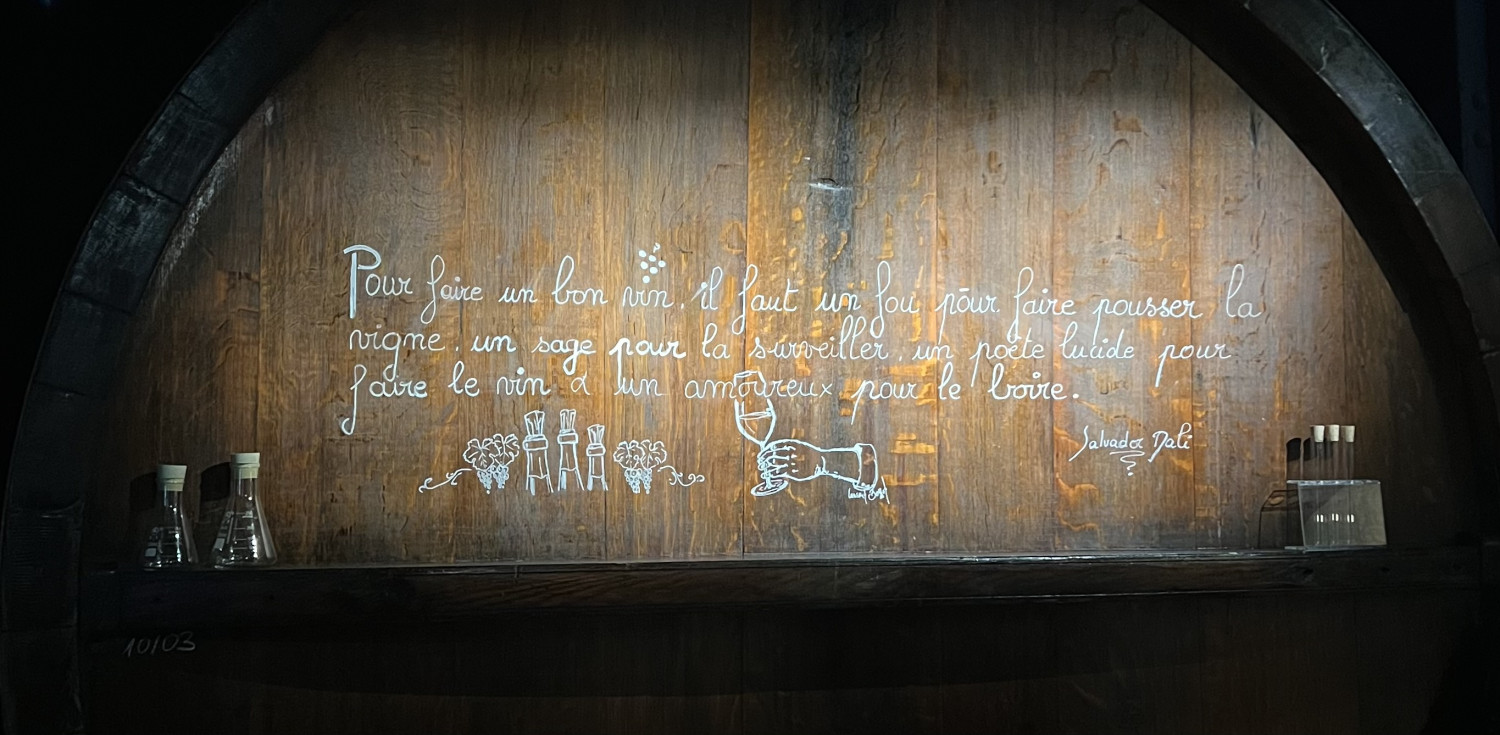 Pour faire un bon vin, il faut un fou pour faire pousser la
vigne, un sage pour la surveiller, un poète lucide pour
faire le vin & un amoureux pour le boire.
Salvador Dali
10/03